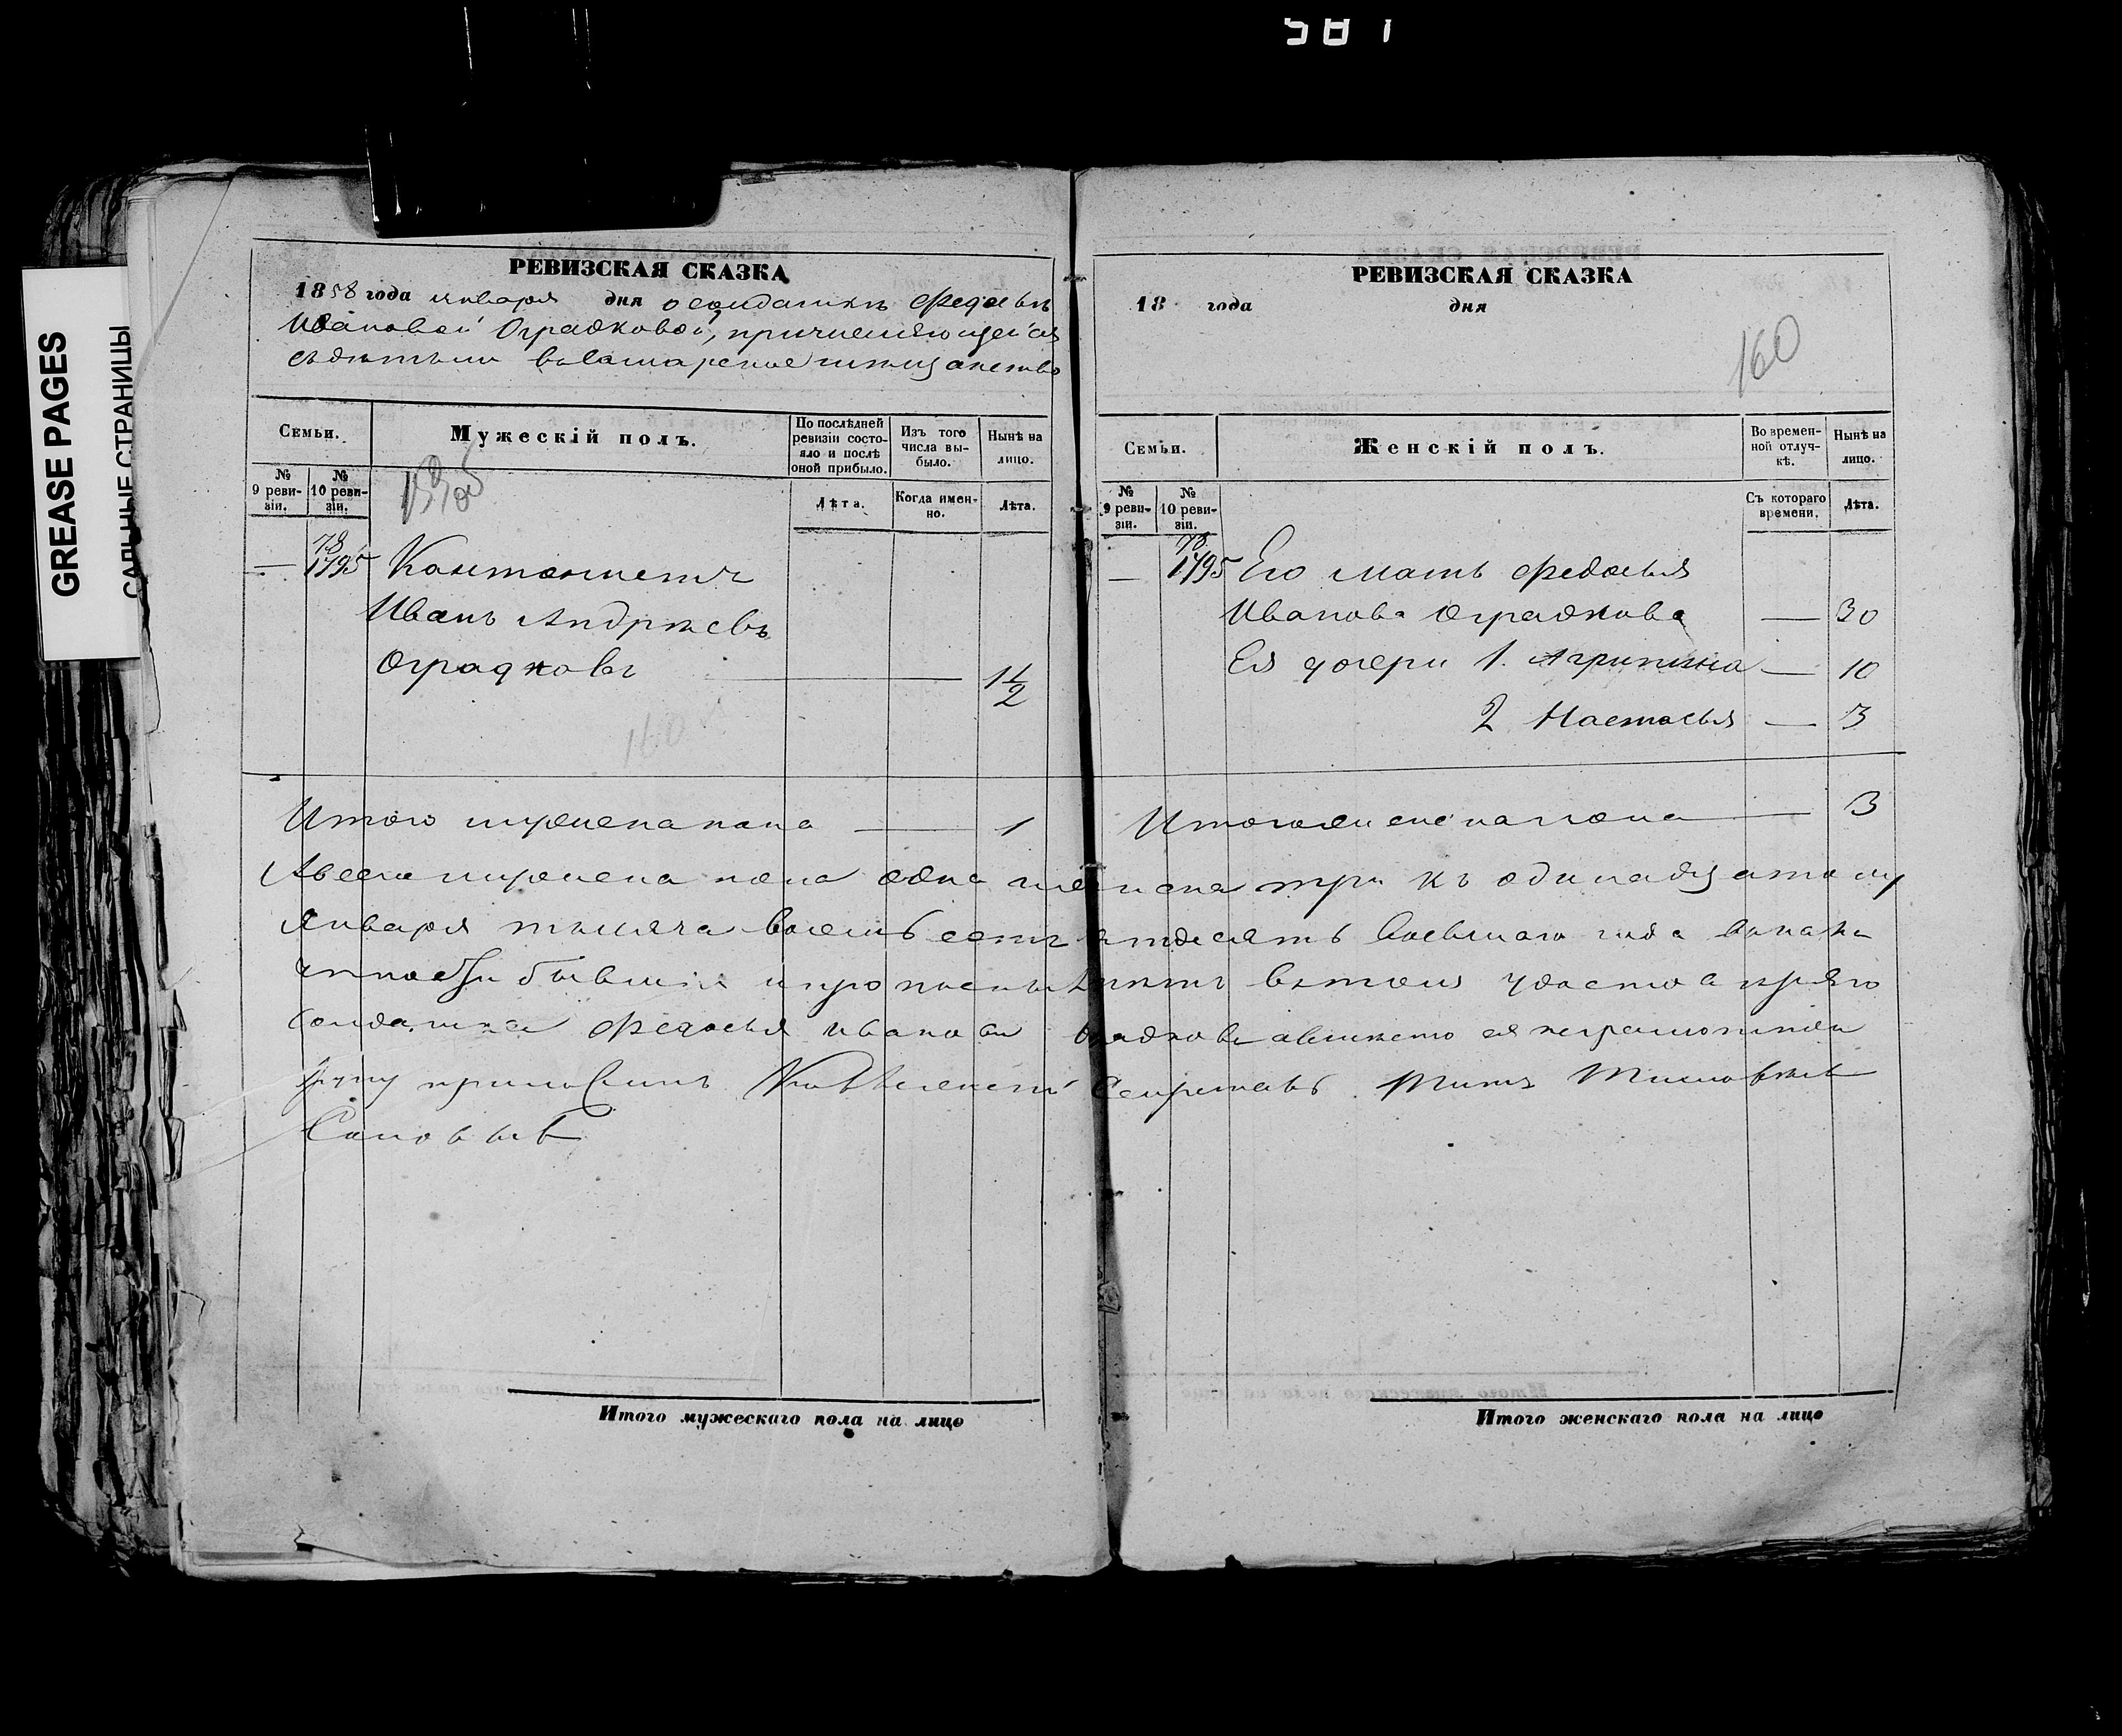 587
GREASE PAGES
САЛЬНЫЕ СТРАНИЦЫ
РЕВИЗСКАЯ СКАЗКА
1858 года января дня о солдаткѣ Федосьѣ
Ивановой Оградковой, причисляющейся
съ дѣтьми въ Самарское мѣщанство
Семьи.
Мужескій полъ.
По послѣдней ревизіи состояло и послѣ оной прибыло.
Изъ того числа выбыло.
Нынѣ на лицо.
№ 9 ревизіи.
№ 10 ревизіи.
Лѣта.
Когда именно.
Лѣта.
78
— 1795 Кантонистъ
Иванъ Андреевъ
Оградковъ — 1½
160
Итого мужеска пола — 1
РЕВИЗСКАЯ СКАЗКА
18 года дня
160
Семьи.
Женскій полъ.
Во временной отлучкѣ.
Нынѣ на лицо.
№ 9 ревизіи.
№ 10 ревизіи.
Съ котораго времени.
Лѣта.
78
— 1795 Его мать Федосья
Иванова Оградкова — 30
Ея дочери 1. Агрипина — 10
2 Настасья — 3
Итого женска пола — 3
А всего мужеска пола одна женска три къ одинадцатому
Января тысяча восемь сотъ пятдесятъ восьмаго года
бывшія и пропис нѣтъ въ томъ удостовѣряю
Солдатка Федосья Иванова Оградкова а вмѣсто ея неграмотной
руку приложилъ Титъ
Итого мужескаго пола на лицо
Итого женскаго пола на лицо